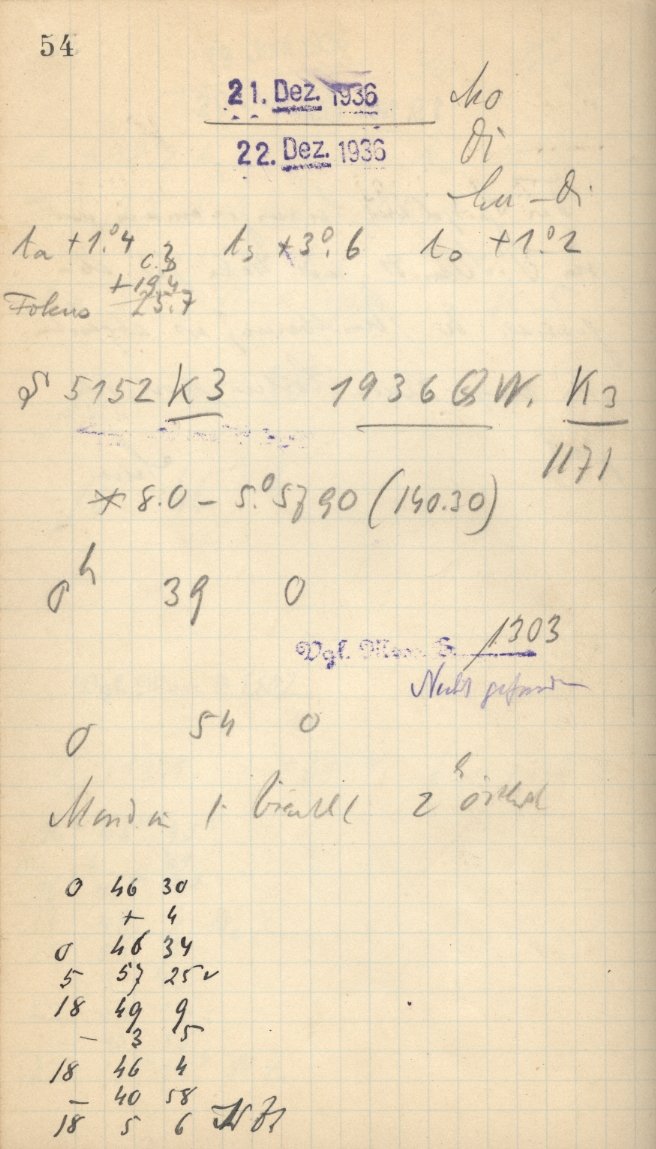 54
21. Dez. 1936
22. Dez. 1936
Mo
Di
ta +1.°4 ts +3°.6 to +1.°2
0.3
+19.4
Fokus 25.7
5152 K3 1936 QW. K3
1171
* 8.0 – 5.°5790 (140.30)
0h 39 0
Vgl. 1303
Nicht gefunden
0 54 0
Mond im 1. Viertel 2h östlich
0 46 30
+ 4
0 46 34
5 57 25 ✓
18 49 9
– 3 5
18 46 4
– 40 58
18 5 6